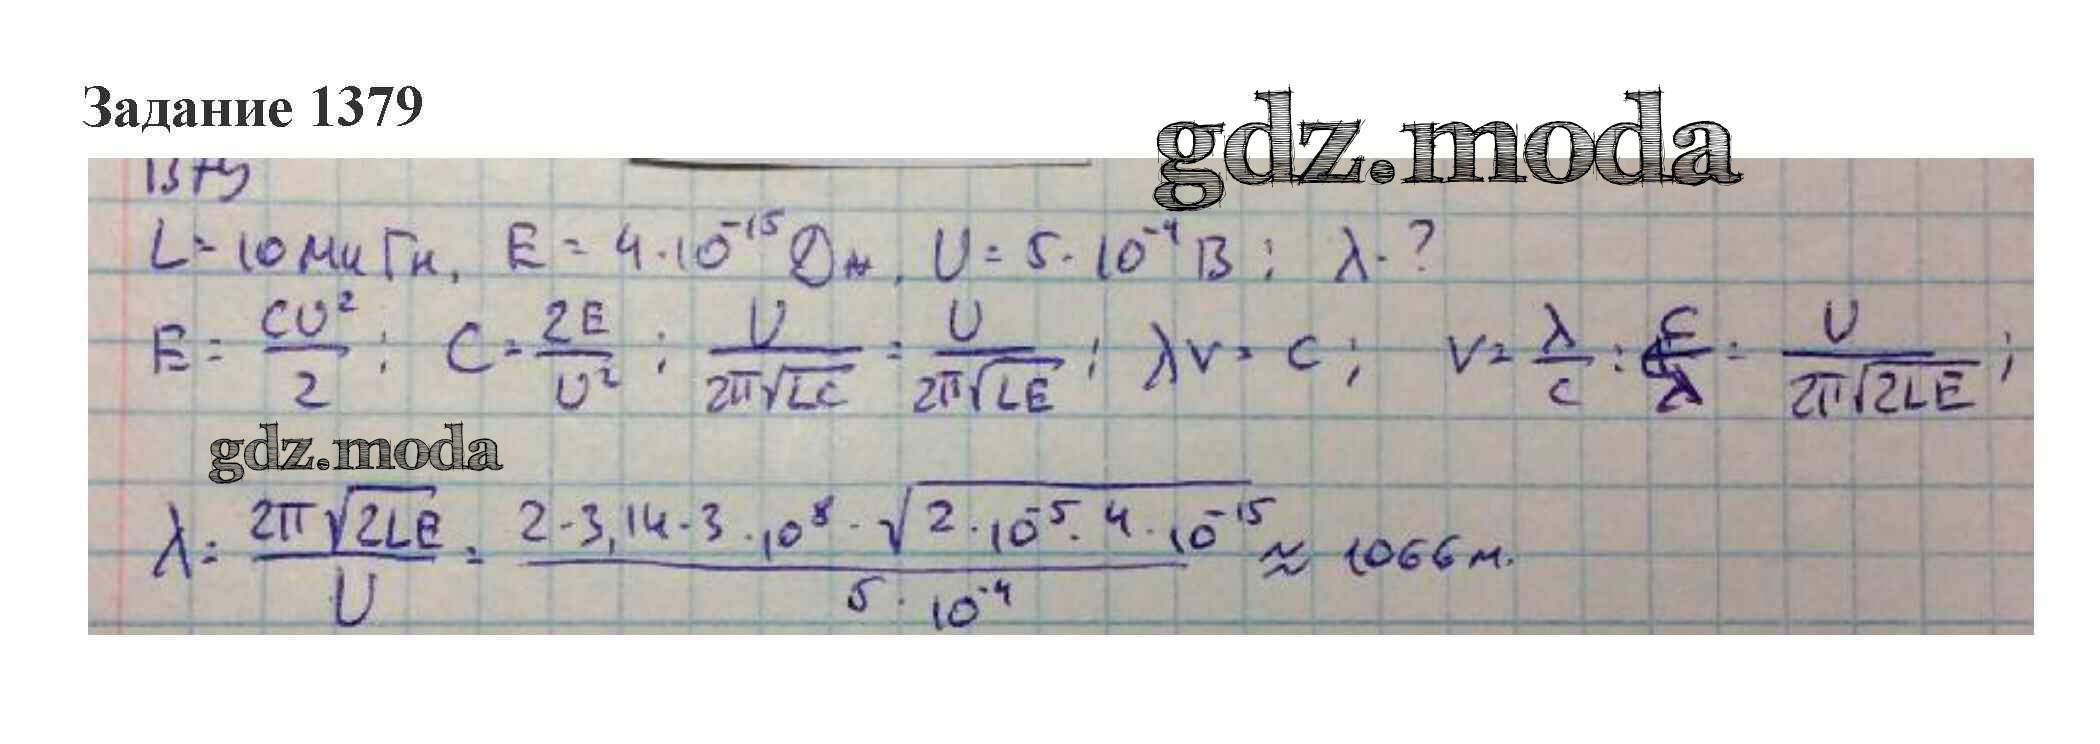 Задание 1379
gdz.moda
1379
L = 10 мкГн, E = 4·10⁻¹⁵ Дж, U = 5·10⁻⁴ В; λ-?
E = CU²/2; C = 2E/U²; U/2π√LC = U/2π√LE; λν = c; ν = λ/c; c/λ = U/2π√2LE;
gdz.moda
λ = 2π√2LE/U = 2·3,14·3·10⁸·√2·10⁻⁵·4·10⁻¹⁵/5·10⁻⁴ ≈ 1066 м.